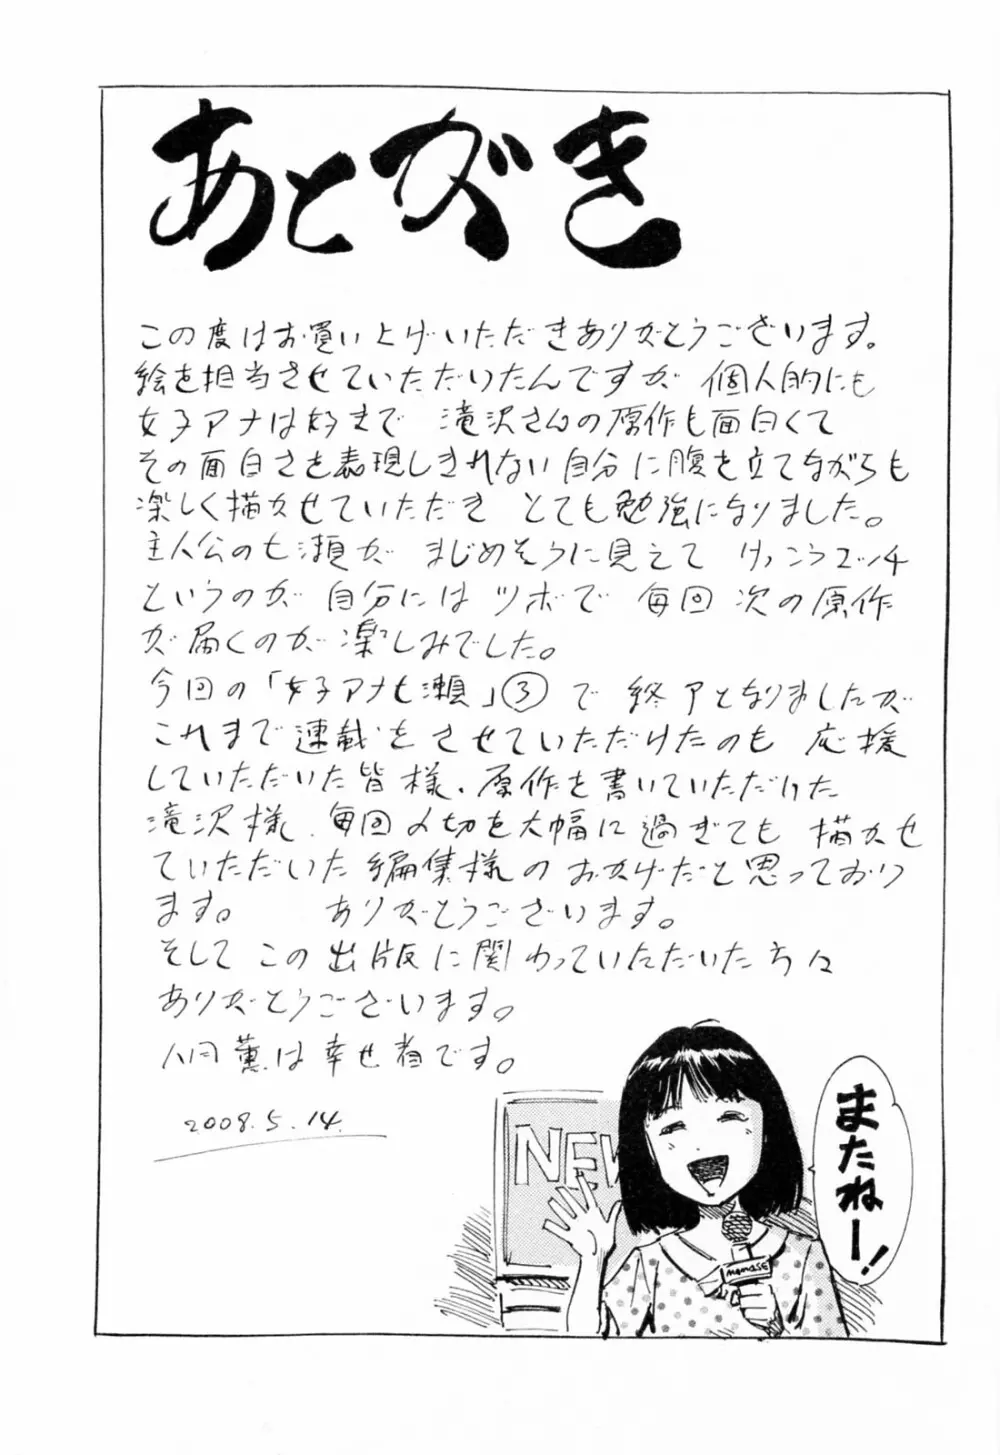 あとがき
この度はお買い上げいただきありがとうございます。
絵を担当させていただいたんですが 個人的にも
女子アナは好きで 滝沢さんの原作も面白くて
その面白さを表現しきれない自分に腹を立てながらも
楽しく描かせていただき とても勉強になりました。
主人公の七瀬が まじめそうに見えて けっこうエッチ
というのが 自分にはツボで 毎回次の原作
が届くのが楽しみでした。
今回の「女子アナ七瀬」③で 終了となりましたが
これまで連載をさせていただけたのも 応援
していただいた皆様、原作を書いていただけた
滝沢様、毎回〆切を大幅に過ぎても 描かせ
ていただいた編集様のおかげだと思っており
ます。 ありがとうございます。
そして この出版に関わっていただいた方々
ありがとうございます。
八月薫は幸せ者です。
2008.5.14.
NEW
またねー!